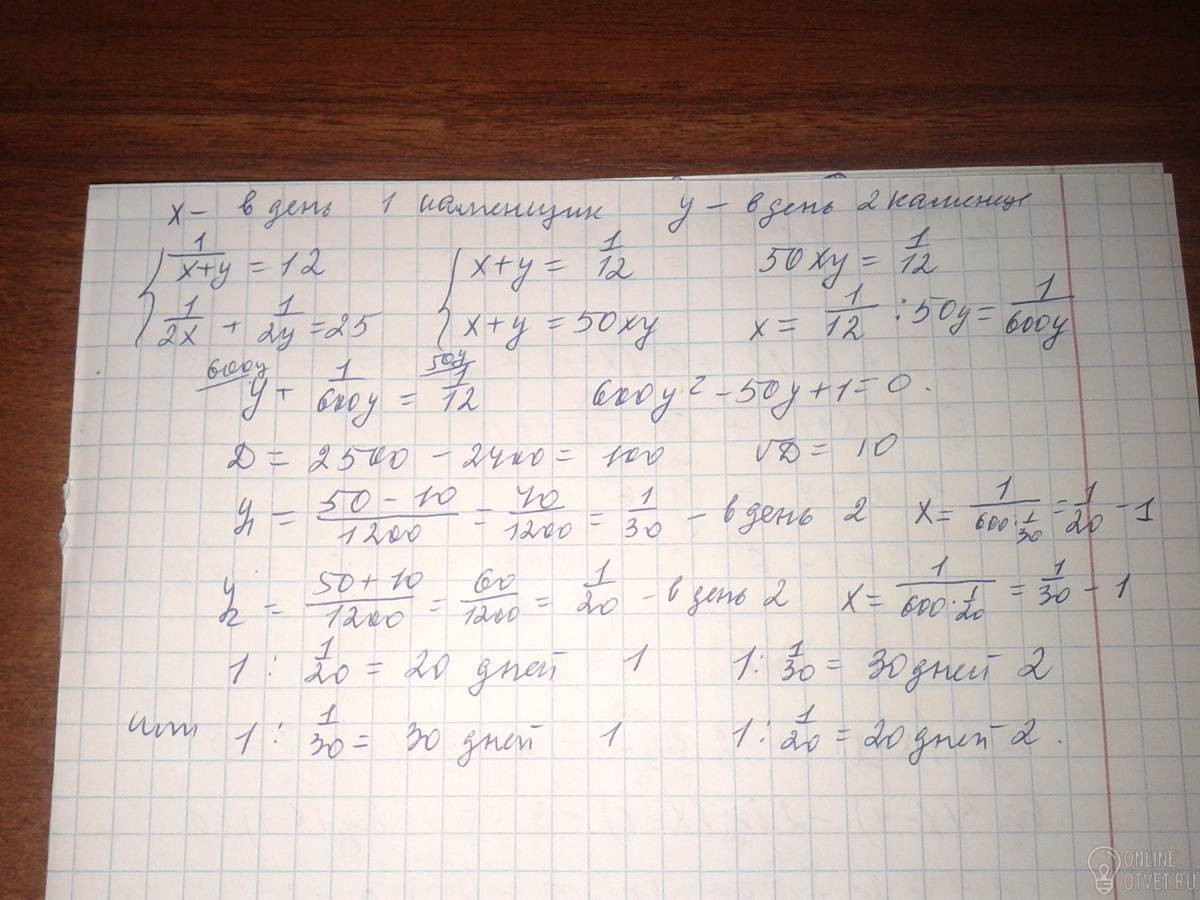 x – в день 1 каменщик y – в день 2 каменщ
{ 1/(x+y) = 12 { x+y = 1/12 50xy = 1/12
1/(2x) + 1/(2y) = 25 x+y = 50xy x = 1/12 : 50y = 1/(600y)
600y 50y
y + 1/(600y) = 1/12 600y² – 50y + 1 = 0.
D = 2500 – 2400 = 100 √D = 10
y₁ = (50 – 10)/1200 = 40/1200 = 1/30 – в день 2 x = 1/(600·1/30) = 1/20 – 1
y₂ = (50 + 10)/1200 = 60/1200 = 1/20 – в день 2 x = 1/(600·1/20) = 1/30 – 1
1 : 1/20 = 20 дней 1 1 : 1/30 = 30 дней 2
или 1 : 1/30 = 30 дней 1 1 : 1/20 = 20 дней 2.
ONLINE
OTVET.RU